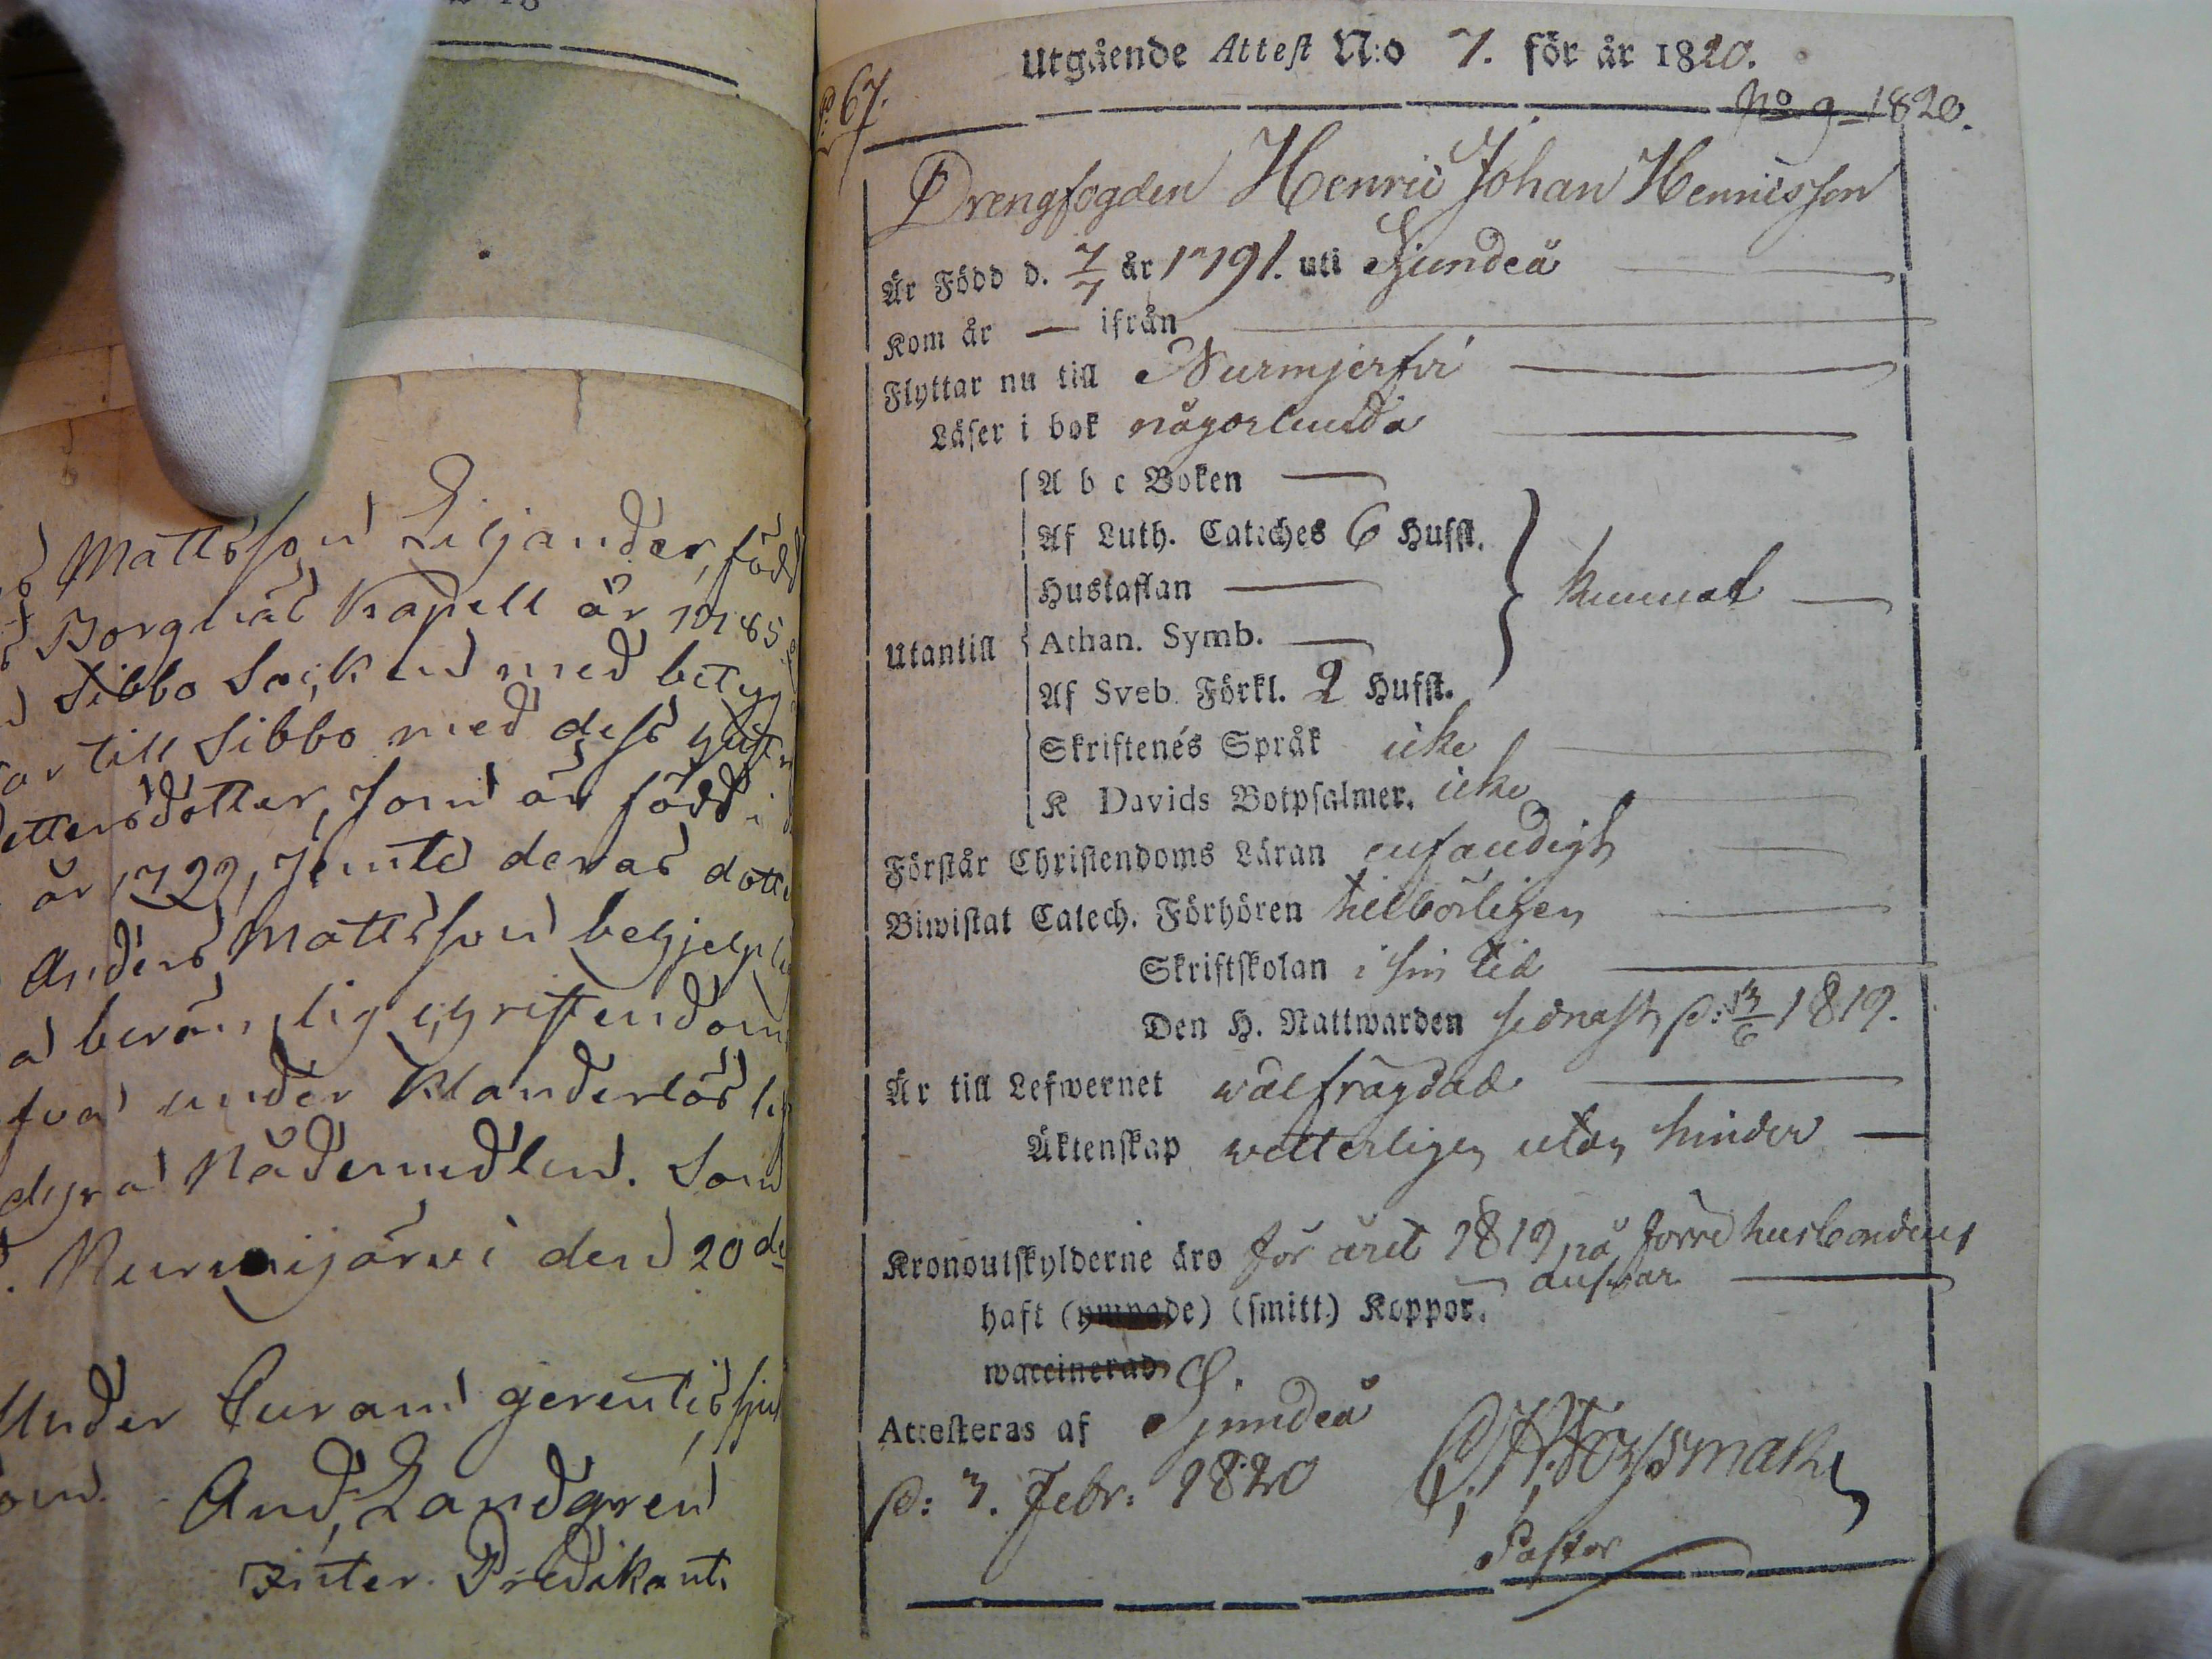 Mattsson Liljander, född
Borgnäs Kapell år 1785
Sibbo Sockn med betyg
till Sibbo med dess hustr
ettersdotter, som är född i
år 1722, jemte deras dott
Anders Mattsson behjelplig
a berömlig christendom
under Klanderlös
dyra Nådemedlen. Som
Nurmijärvi den 20de
Under Curam gerentis
And. Landgren
Inter. Predikant.
Utgående Attest N:o 7. för år 1820.
P. 67.
No 9 1820.
Drengfogden Henric Johan Henricsson
Är Född d. 7/7 år 1791. uti Sjundeå
Kom år — ifrån
Flyttar nu till Nurmjerfvi
Läser i bok någorlunda
A b c Boken —
Af Luth. Cateches 6 Hufst.
Hustaflan —
kunnat —
Utantill
Athan. Symb. —
Af Sveb. Förkl. 2 Hufst.
Skriftenés Språk icke
K Davids Botpsalmer. icke
Förstår Christendoms Läran enfaldigt
Biwistat Catech. Förhören tilbörligen
Skriftskolan i sin tid
Den H. Nattwarden sednast d: 13/6 1819.
Är till Lefwernet wälfrägdad
Äktenskap wetterligen utan hinder —
Kronoutskylderne äro för året 1819 på förre husbondens
answar
haft (ympade) (smitt.) Koppor.
waccinerad
Attesteras af Sjundeå
d: 3. Febr: 1820
Pastor